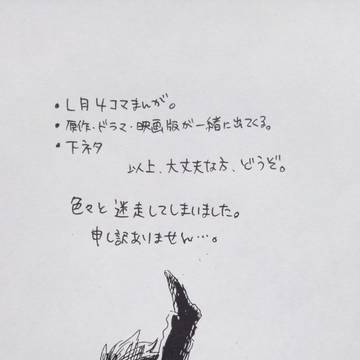 ・L月4コマまんが。
・原作・ドラマ・映画版が一緒に出てくる。
・下ネタ
以上、大丈夫な方、どうぞ。
色々と迷走してしまいました。
申し訳ありません…。